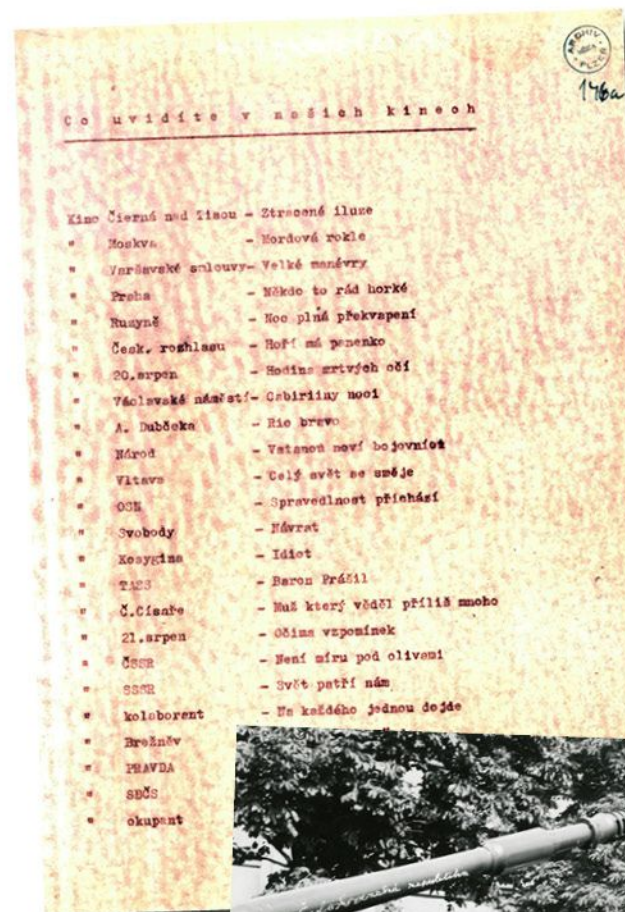 ARCHIV
PLZEŇ
176a
Co uvidíte v našich kinech
Kino Čierná nad Tisou – Ztracené iluze
" Moskva – Mordová rokle
" Varšavské smlouvy – Velké manévry
" Praha – Někdo to rád horké
" Ruzyně – Noc plná překvapení
" Česk. rozhlasu – Hoří má panenko
" 20.srpen – Hodina mrtvých očí
" Václavské náměstí – Cabiriiny noci
" A. Dubčeka – Rio bravo
" Národ – Vstanou noví bojovníci
" Vltava – Celý svět se směje
" OSN – Spravedlnost přichází
" Svobody – Návrat
" Kosygina – Idiot
" TASS – Baron Prášil
" Č.Císaře – Muž který věděl příliš mnoho
" 21.srpen – Očima vzpomínek
" ČSSR – Není míru pod olivami
" SSSR – Svět patří nám
" kolaborant – Na každého jednou dojde
" Brežněv
" PRAVDA
" SBČS
" okupant
republika